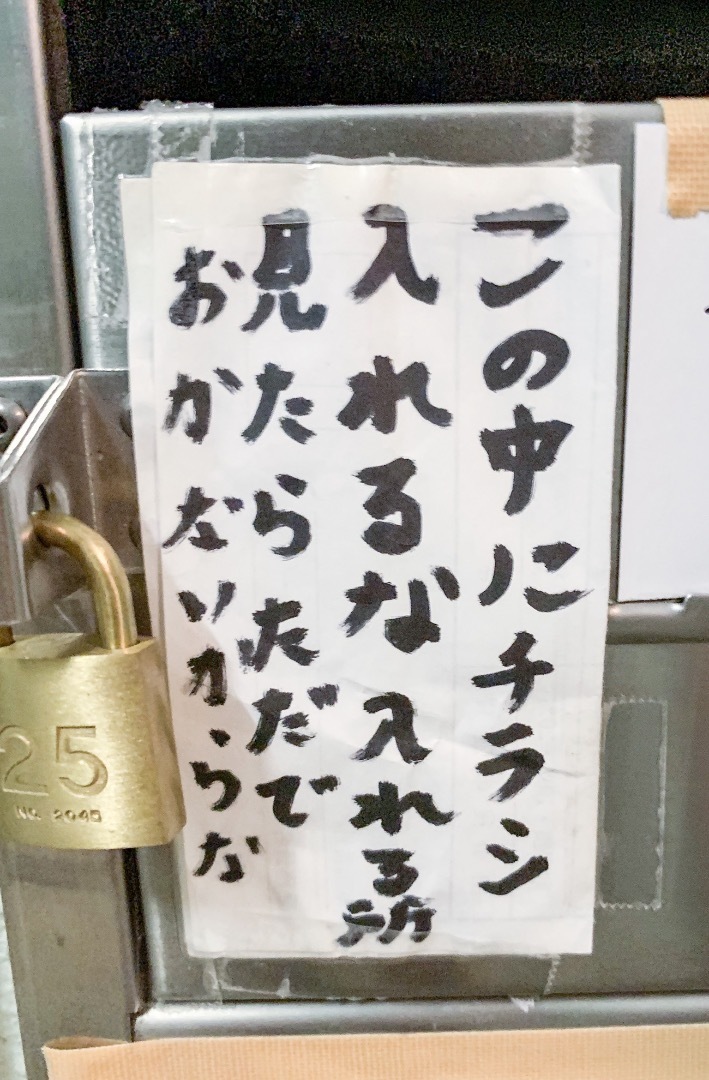 この中にチラシ
入れるな入れる所
見たらただで
おかないからな
25
NO. 2045